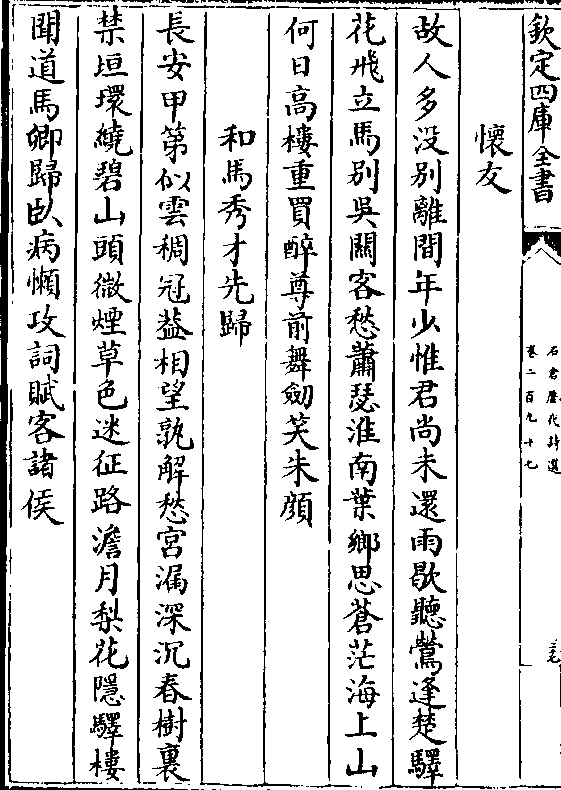 欽定四庫全書
石倉歷代詩選
卷二百九十七
懷友
故人多没别離間年少惟君尚未還雨歇聽鶯逢楚驛
花飛立馬别吳關客愁蕭瑟淮南葉鄉思蒼茫海上山
何日髙樓重買醉尊前舞劒笑朱顔
和馬秀才先歸
長安甲第似雲稠冠葢相望孰解愁宫漏深沉春樹裏
禁垣環繞碧山頭微煙草色迷征路澹月梨花隱驛樓
聞道馬卿歸卧病懶攻詞賦客諸侯